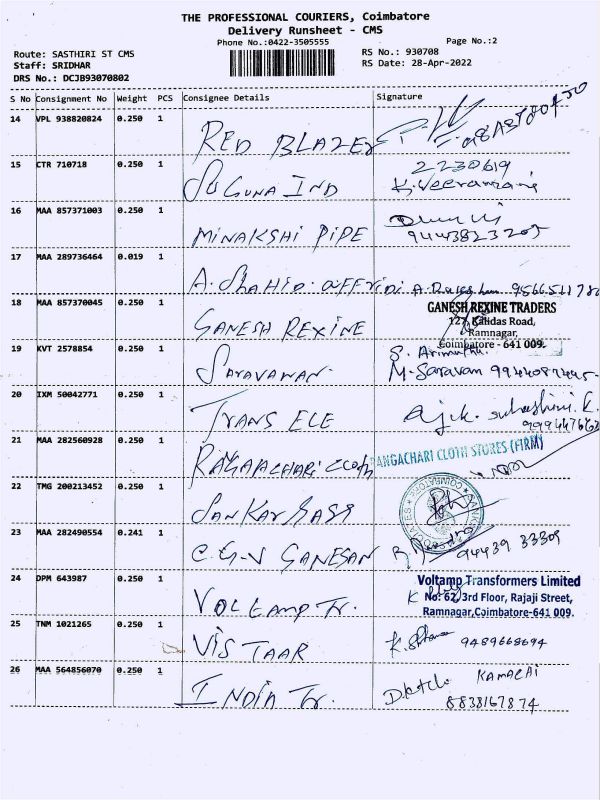 THE PROFESSIONAL COURIERS, Coimbatore
Delivery Runsheet - CMS
Phone No.:0422-3505555
Page No.:2
Route: SASTHIRI ST CMS
RS No.: 930708
Staff: SRIDHAR
RS Date: 28-Apr-2022
DRS No.: DCJB93070802
S No Consignment No Weight PCS Consignee Details Signature
14 VPL 938820824 0.250 1 RED BLAZER
15 CTR 710718 0.250 1 SUGUNA IND 2230619
K. Veeramani
16 MAA 857371003 0.250 1 MINAKSHI PIPE
9443823205
17 MAA 289736464 0.019 1 A. SHAHID AFFRIDI
18 MAA 857370045 0.250 1 GANESH REXINE GANESH REXINE TRADERS
127, Kalidas Road,
Ramnagar,
Coimbatore - 641 009.
19 KVT 2578854 0.250 1 SARAVANAN S. Arimuthu
M. Saravan
20 IXM 50042771 0.250 1 TRANS ELE
21 MAA 282560928 0.250 1 RANGACHARI CLOTH RANGACHARI CLOTH STORES (FIRM)
22 TMG 200213452 0.250 1 SANKAR
23 MAA 282490554 0.241 1 C.G.V GANESAN 94439 33309
24 DPM 643987 0.250 1 VOLTAMP Tr. Voltamp Transformers Limited
No: 62, 3rd Floor, Rajaji Street,
Ramnagar, Coimbatore-641 009.
25 TNM 1021265 0.250 1 VISTAAR 9489668694
26 MAA 564856070 0.250 1 INDIA Tr. KAMALAI
8838167874